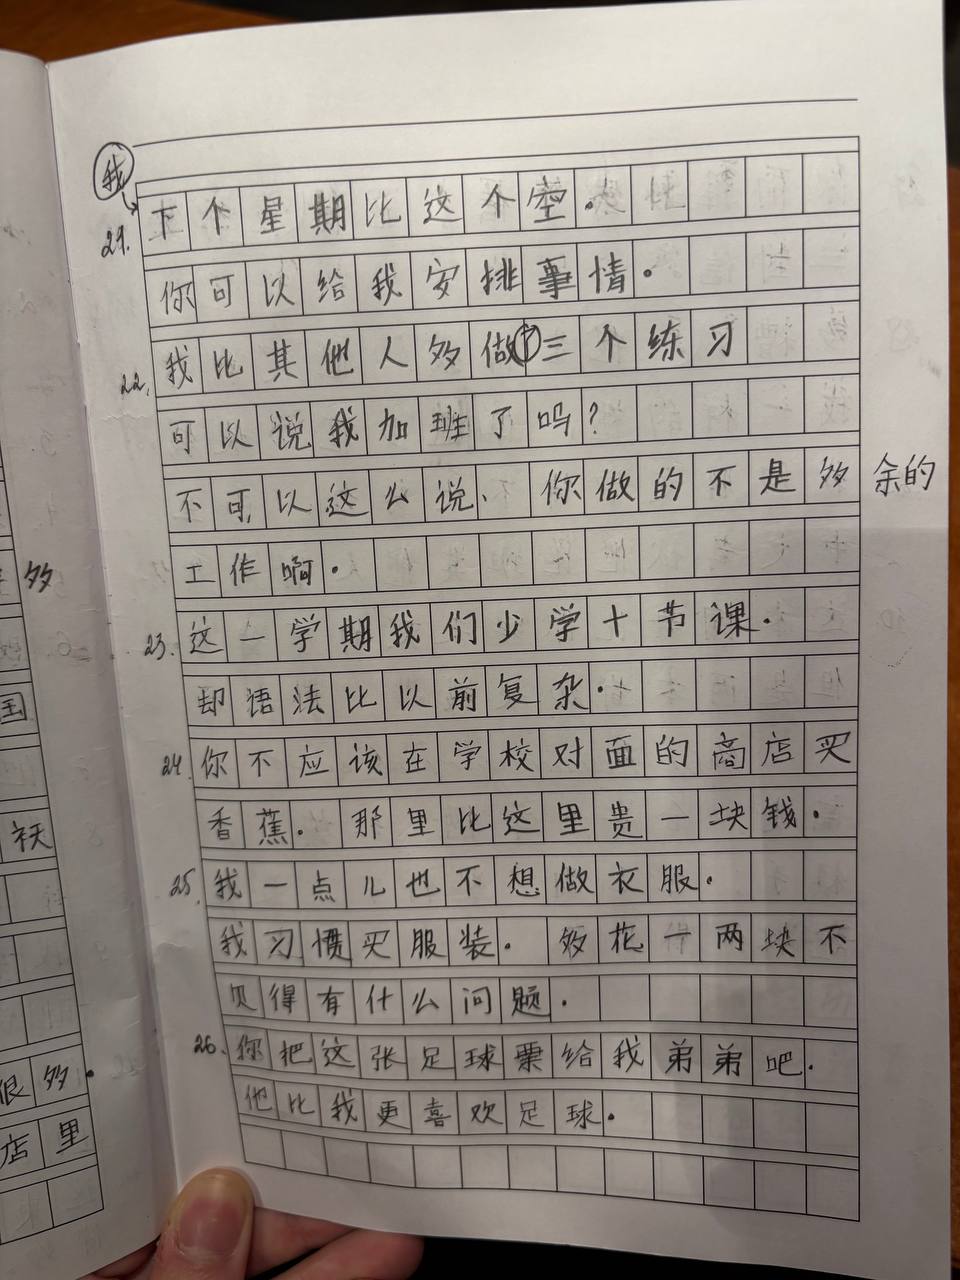 我
21. 下个星期比这个空。
你可以给我安排事情。
22. 我比其他人多做了三个练习
可以说我加班了吗?
不可以这么说、你做的不是多余的
工作啊。
23. 这一学期我们少学十节课.
却语法比以前复杂.
24. 你不应该在学校对面的商店买
香蕉. 那里比这里贵一块钱.
25. 我一点儿也不想做衣服.
我习惯买服装. 多花一两块不
见得有什么问题.
26. 你把这张足球票给我弟弟吧.
他比我更喜欢足球.
多
国
袄
很多.
店里